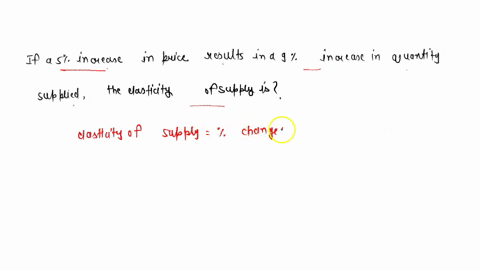 If a 5% increase in price results in a 9% increase in quantity
supplied, the elasticity of supply is?
elasticity of supply = % change